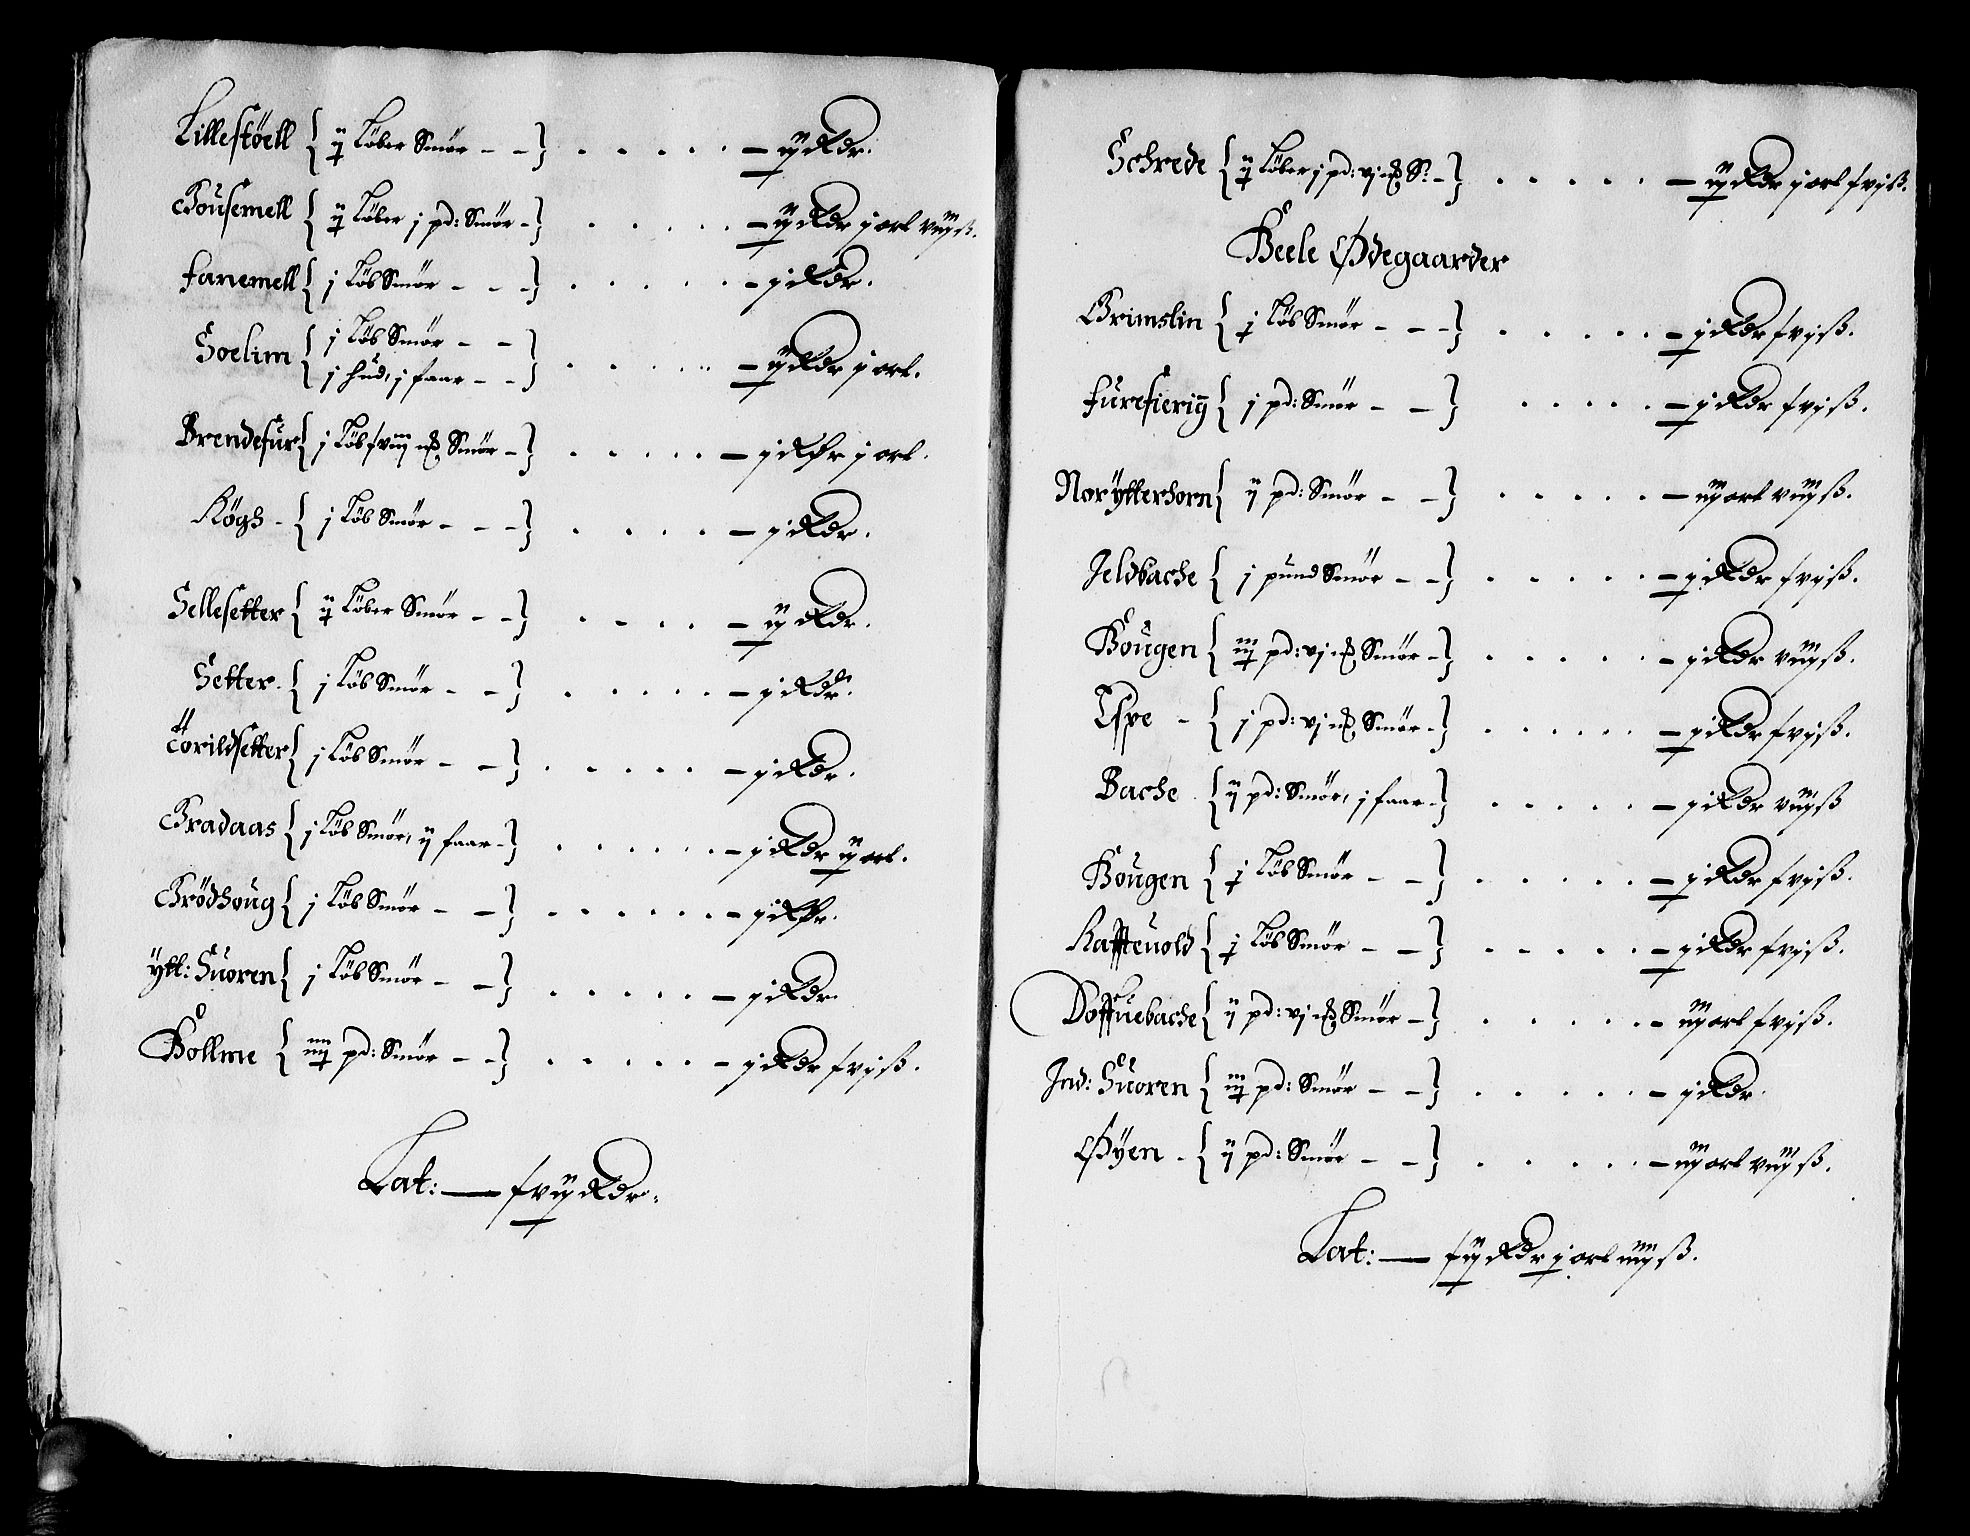 Lillestöell { ij Löber Smör - - } . . . . . — ij Rdr.
Housemell { ij Löber j pd: Smör - } . . . . . — ij Rdr j ort viij ß.
Fanemell { j Löb Smör - - - } . . . . . — j Rdr.
Soelim { j Löb Smör - -
j Hud, j faar - - } . . . . . — ij Rdr j ort.
Brendefur { j Löb / viij mk Smör - } . . . . . — j Rdr j ort.
Högh - { j Löb Smör - - - } . . . . — j Rdr.
Sellesetter { ij Löber Smör - - } . . . . — ij Rdr.
Setter. { j Löb Smör - - } . . . . . — j Rdr.
Torildsetter { j Löb Smör - - } . . . . . — j Rdr.
Bradaas { j Löb Smör, ij faar - } . . . . . — j Rdr ij ort.
Brödhoug { j Löb Smör - - } . . . . . — j Rdr.
ÿtt: Suoren { j Löb Smör - - } . . . . . — j Rdr.
Bollme { iiij pd: Smör - - } . . . . . — j Rdr xvj ß.
Lat: — xvij Rdr.
Schrede { ij Löber j pd: vj mk S: - } . . . . . — ij Rdr j ort xvj ß.
Heele Ødegaarder
Grimslin { j Löb Smör - - - } . . . . . — j Rdr xvj ß.
Furefierig { j pd: Smör - - } . . . . . — j Rdr xvj ß.
Nor ÿtterhorn { ij pd: Smör - - } . . . . . — iij ort viij ß.
Jeldbache { j pund Smör - - } . . . . . — j Rdr xvj ß.
Hougen { iij pd: vj mk Smör - } . . . . . — j Rdr viij ß.
Espe - { j pd: vj mk Smör - } . . . . . . — j Rdr xvj ß.
Bache { ij pd: Smör, j faar - } . . . . . — j Rdr viij ß
Hougen { j Löb Smör - - } . . . . . — j Rdr xvj ß.
Raffteuold { j Löb Smör - - } . . . . . — j Rdr xvj ß.
Doffuebache { ij pd: vj mk Smör - } . . . . . — iij ort xvj ß.
Ind: Suoren { iij pd: Smör - - } . . . . . — j Rdr.
Øÿen - { ij pd: Smör - - } . . . . . — iij ort viij ß.
Lat: — xij Rdr j ort iiij ß.